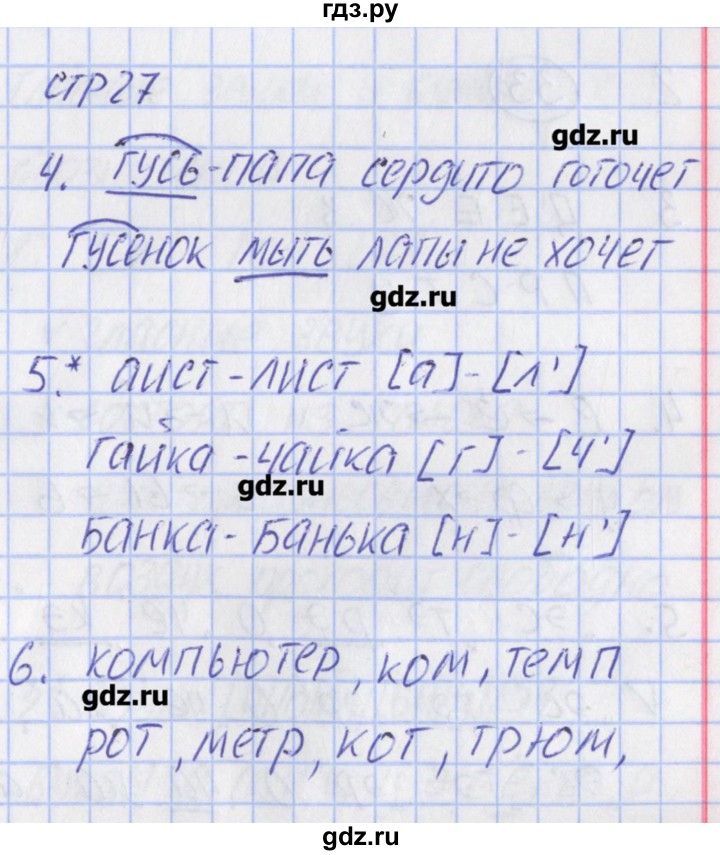 гдз.ру
стр 27
gdz.ru
4. гусь-папа сердито гогочет
гусенок мыть лапы не хочет
gdz.ru
5.* аист - лист [а] - [л']
гайка - чайка [г] - [ч']
gdz.ru
банка - банька [н] - [н']
6. компьютер, ком, темп
gdz.ru
рот, метр, кот, трюм,
gdz.ru